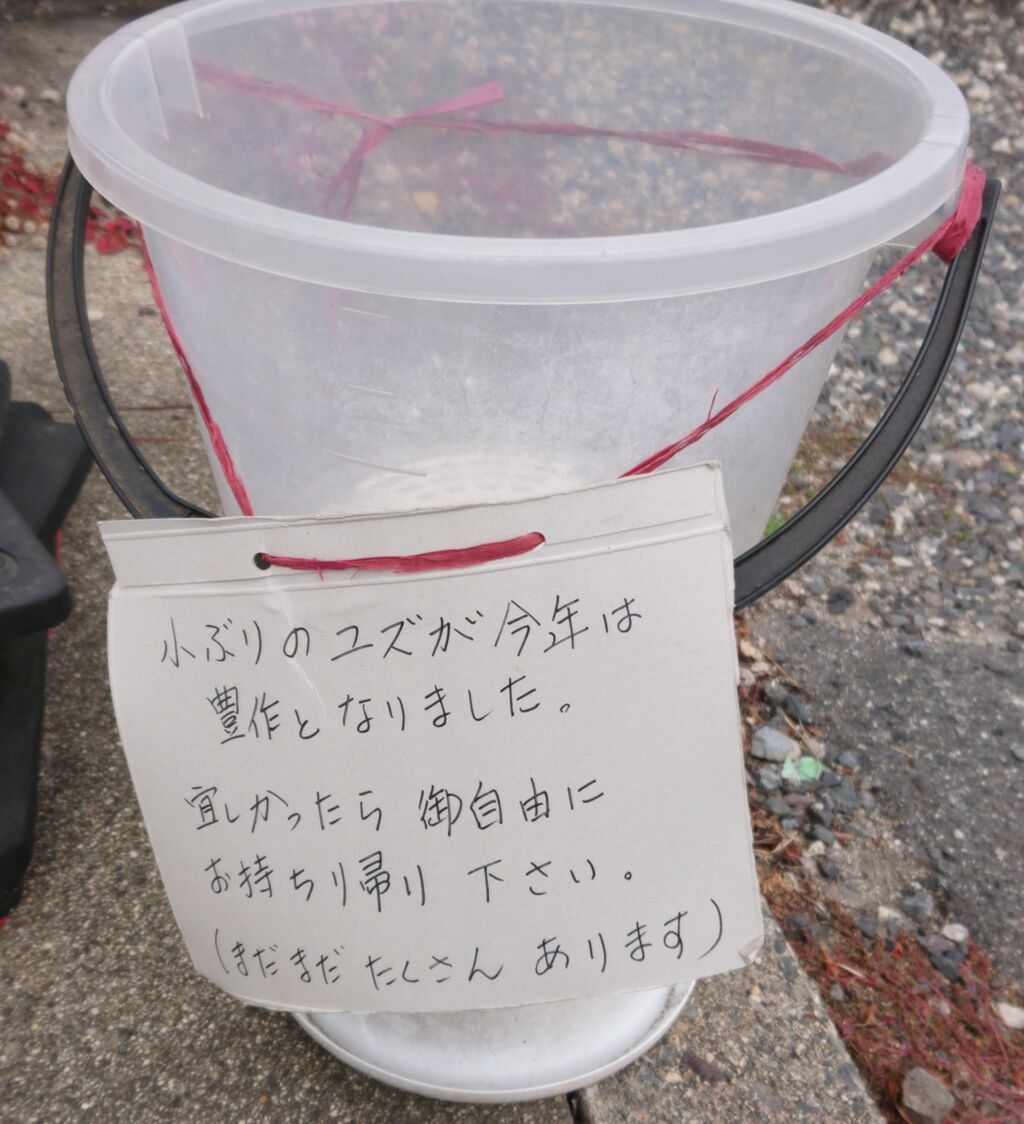 小ぶりのユズが今年は
豊作となりました。
宜しかったら 御自由に
お持ちり帰り 下さい。
(まだまだ たくさん あります)